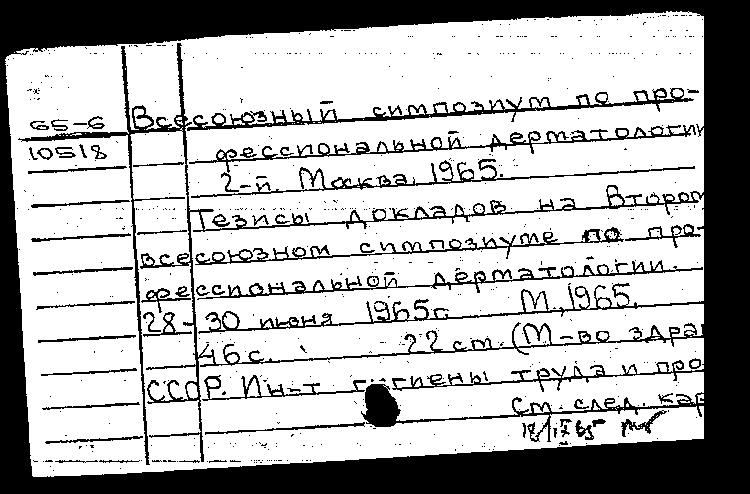 65-6 Всесоюзный симпозиум по про-
10518 фессиональной дерматологии
2-й. Москва, 1965.
Тезисы докладов на Втором
всесоюзном симпозиуме по про-
фессиональной дерматологии.
28-30 июня 1965г. М., 1965.
46с. 22 см. (М-во здрав
СССР. Ин-т гигиены труда и про
См. след. кар
18/IX 65